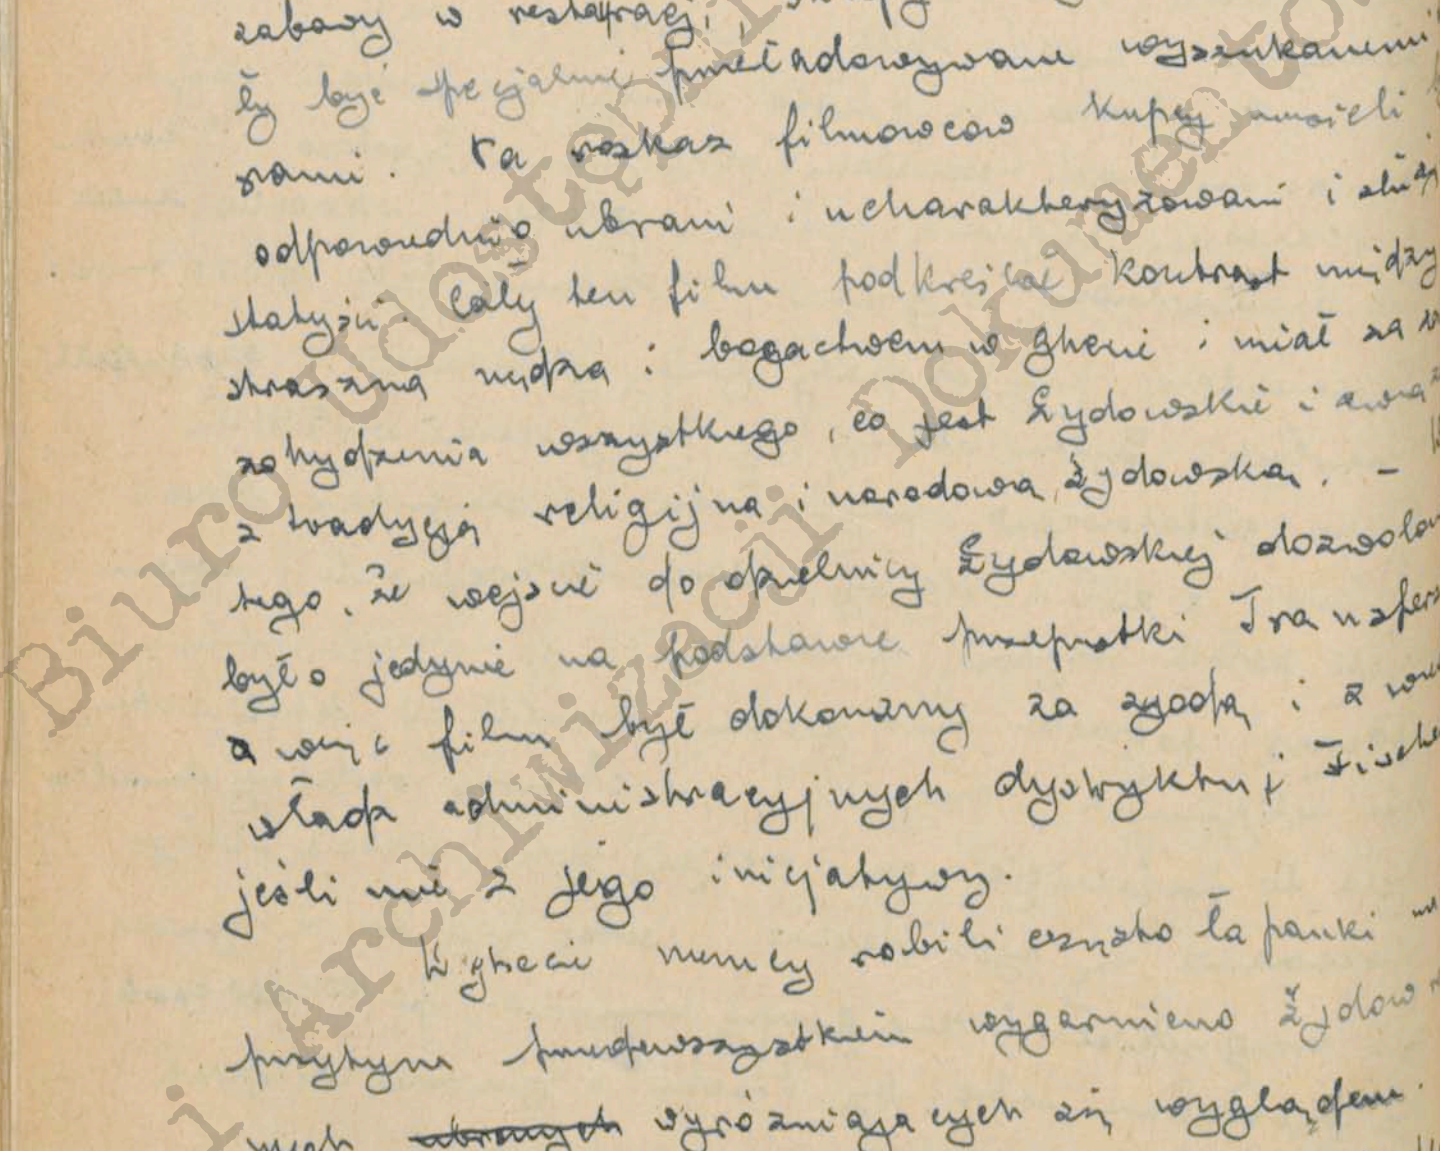 zabawy w restauracji,
ły być specjalnie przeładowywane wyszukanemi
rami. Na rozkaz filmowców kupcy musieli
odpowiednio ubrani i ucharakteryzowani i służ
statyści. Cały ten film podkreślał kontrast między
straszną nędzą i bogactwem w ghecie i miał za
zohydzenia wszystkiego, co jest żydowskie i zwią
z tradycją religijną i narodową żydowską. -
tego, że wejście do dzielnicy żydowskiej dozwolon
było jedynie na podstawie przepustki Transfers
a więc film był dokonany za zgodą i z
władz administracyjnych dystryktu, Fische
jeśli nie z jego inicjatywy.
W ghecie niemcy robili często łapanki
przytym przedewszystkiem wygarnieno żydów
ubranych wyróżniających się wyglądem.
Biuro Udostępni
i Archiwizacji Dokumentów